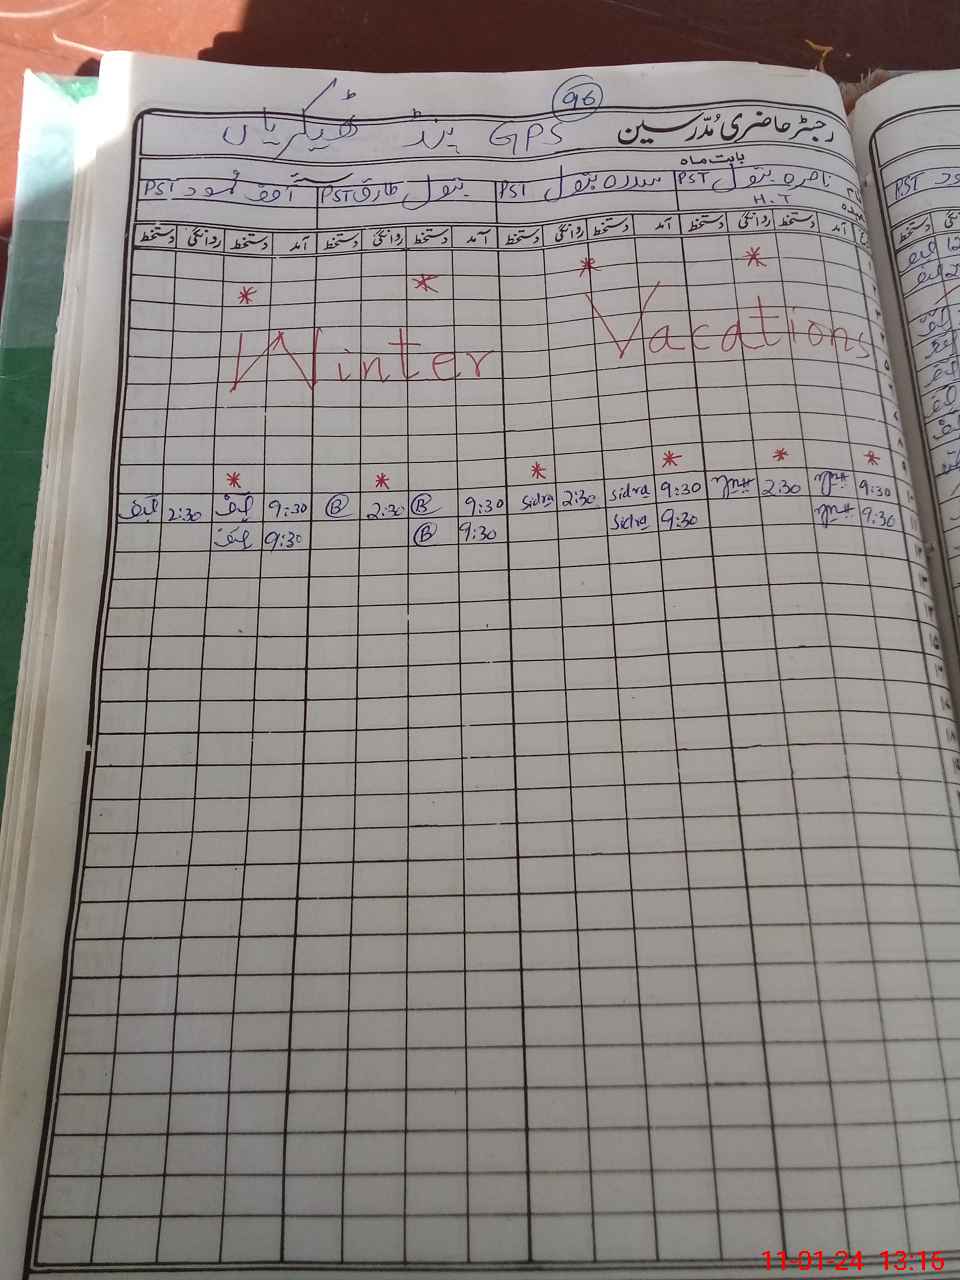 96
رجسٹر حاضری مُدرسین GPS پنڈ ٹھیکریاں
بابت ماہ
ناصرہ بتول PST سدرہ بتول PST بتول طارق PST PST
H.T
آمد دستخط روانگی دستخط آمد دستخط روانگی دستخط آمد دستخط روانگی دستخط آمد دستخط روانگی دستخط
Winter Vacations
9:30 2:30 9:30 sidra 2:30 sidra 9:30 B 2:30 B 9:30 2:30
9:30 9:30 sidra 9:30 B 9:30
11-01-24 13:16